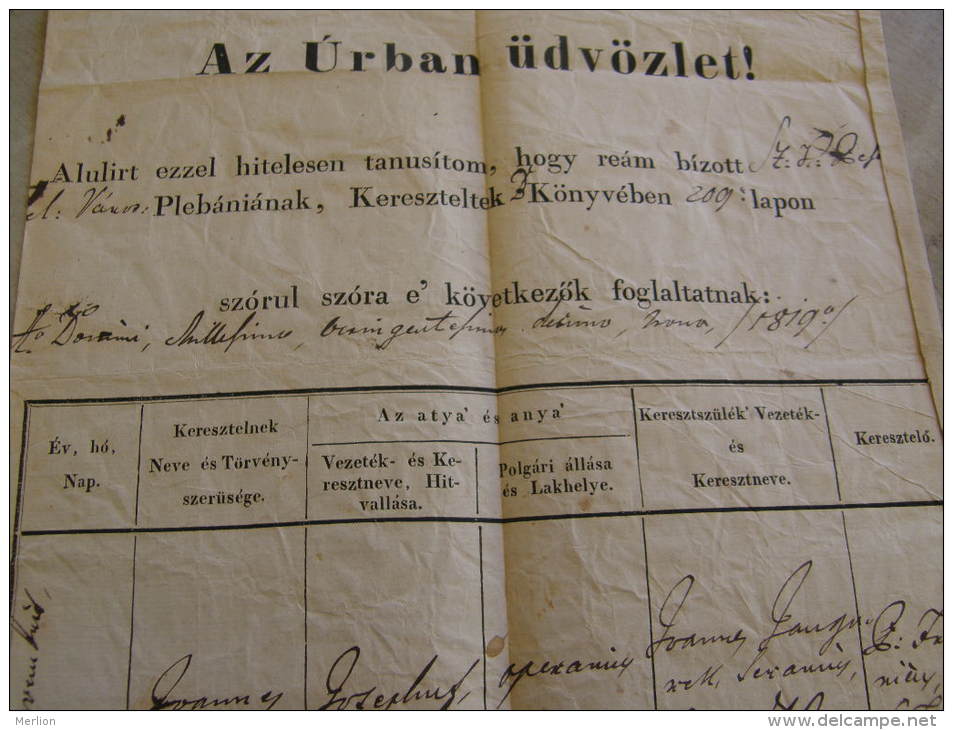 Az Úrban üdvözlet!
Alulirt ezzel hitelesen tanusítom, hogy reám bízott
Város: Plebániának, Kereszteltek 3 Könyvében 209: lapon
szórul szóra e' következők foglaltatnak:
Millesimo octingentesimo decimo nono, /1819o/
Év, hó,
Nap.
Keresztelnek
Neve és Törvény-
szerüsége.
Az atya' és anya'
Vezeték- és Ke-
resztneve, Hit-
vallása.
Polgári állása
és Lakhelye.
Keresztszülék' Vezeték-
és
Keresztneve.
Keresztelő.
Joannes
Josephus,
operarius
Joannes
Merlion
www.delcampe.net